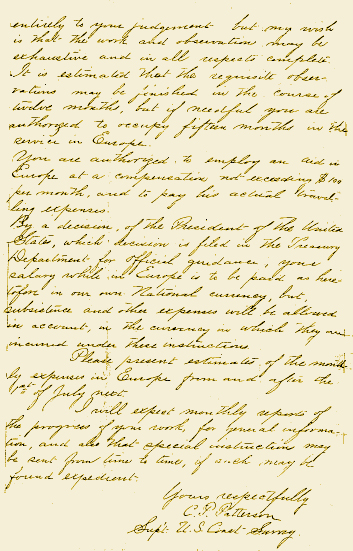 entirely to your judgement but my wish
is that the work and observations may be
exhaustive and in all respects complete.
It is estimated that the requisite obser-
vations may be finished in the course of
twelve months, but if needful you are
authorized to occupy fifteen months in the
service in Europe.
You are authorized to employ an aid in
Europe at a compensation not exceeding $100
per month, and to pay his actual travel-
ling expenses.
By a decision, of the President of the United
States, which decision is filed in the Treasury
Department for official guidance, your
salary while in Europe is to be paid as here-
tofore in our own National currency, but,
subsistence and other expenses will be allowed
in account, in the currency in which they are
incurred under these instructions.
Please present estimates of the month-
ly expenses in Europe from and after the
1st of July next.
I will expect monthly reports of
the progress of your work, for general informa-
tion, and also that special instruction may
be sent from time to time, if such may be
found expedient.
Yours respectfully
C. P. Patterson
Supt. U.S. Coast Survey.